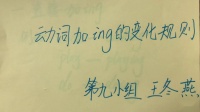 动词加ing的变化规则
第九小组 王冬燕